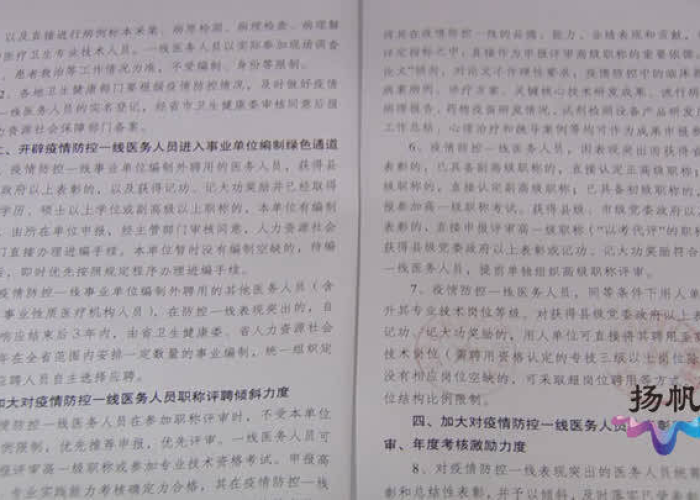 以及直接进行病例标本采集、病原检测、病理检查、病理解
医疗卫生专业技术人员。一线医务人员以实际参加现场调查
、患者救治等工作情况为准，不受编制、身份等限制。
2、各地卫生健康部门要根据疫情防控情况，及时做好疫情
一线医务人员的实名登记，经省市卫生健康委审核同意后报
力资源社会保障部门备案。
二、开辟疫情防控一线医务人员进入事业单位编制绿色通道
疫情防控一线事业单位编制外聘用的医务人员，获得县
政府以上表彰的，以及获得记功、记大功奖励并已经取得
学历、硕士以上学位或副高级以上职称的，本单位有编制
由所在单位申报，经主管部门审核同意，人力资源社会
门直接办理进编手续。本单位暂时没有编制空缺的，待编
后，即时优先按照规定程序办理进编手续。
疫情防控一线事业单位编制外聘用的其他医务人员（含
事业性质医疗机构人员），在防控一线表现突出的，自
响应结束后3年内，由省卫生健康委、省人力资源社会
年在全省范围内安排一定数量的事业编制，统一组织定
应聘人员自主选择应聘。
加大对疫情防控一线医务人员职称评聘倾斜力度
情防控一线医务人员在参加职称评审时，不受本单位
例限制，优先推荐申报，优先评审。一线医务人员可
报评审高一级职称或参加专业技术资格考试。申报高
，专业实践能力考核确定合格，其在疫情防控一线
间其在疫情防控一线的品德、能力、业绩表现和贡献，
评定指标之中，直接作为申报评审高级职称的重要依据。
论文"倾向，对论文不作硬性要求，疫情防控中的临床
病案病例、诊疗方案、关键核心技术研发成果、流行病
病调报告、药物疫苗研发情况、试剂检测设备产品研发
工作总结、心理治疗和疏导案例等均可作为成果市级
6、疫情防控一线医务人员，因表现突出而获得省
表彰的，已具备副高级职称的，直接认定正高级职称；
级职称的，直接认定副高级职称；已具备初级职称的
加高一级职称考试。获得县级、市级党委政府以
的，直接申报评审高一级职称（"以考代评"的职称
获得县级党委政府以上表彰或记功、记大功奖励符合
一线医务人员，提前单独组织高级职称评审。
7、疫情防控一线医务人员，同等条件下用人单
升其专业技术岗位等级。对获得县级党委政府以上
记功、记大功奖励的，用人单位可直接将其聘用至高
技术岗位（需聘用资格认定的专技三级以上岗位除
没有相应岗位空缺的，可采取超岗位聘用等方式
位结构比例限制。
四、加大对疫情防控一线医务人员
审、年度考核激励力度
8、对疫情防控一线表现突出的医务人员
彰和总结性表彰，并予以倾斜，及时
扬帆